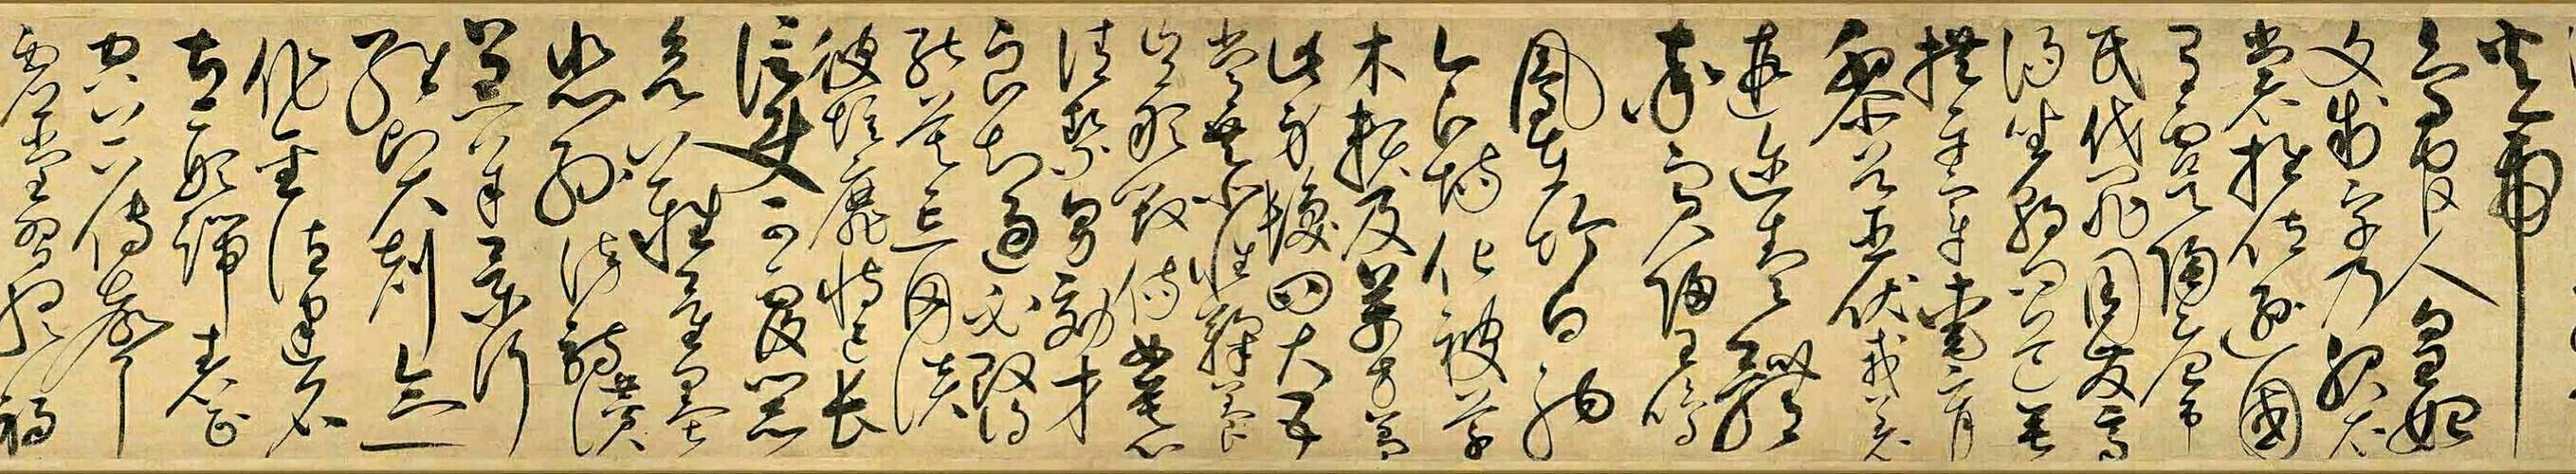 火帝
鳥官人皇始
文制字乃服衣
裳推位遜國
有虞陶唐弔
民伐罪周發商
湯坐朝問道垂
拱平章愛育
黎首臣伏戎羌
遐邇壹體
率賓歸王鳴
鳳在竹白駒
食場化被草
木賴及萬方蓋
此身髮四大五
常恭惟鞠養
豈敢毀傷女慕
清潔男效才
良知過必改得
能莫忘罔談
彼短靡恃己長
信使可覆器
欲難量墨
悲絲染詩讚
羔羊景行
維賢剋念
作聖德建名
立形端表正
空谷傳聲
虛堂習聽禍